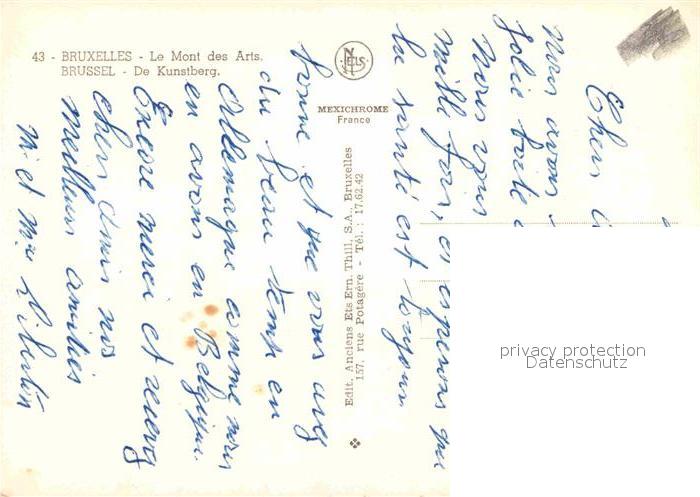 43 - BRUXELLES - Le Mont des Arts.
BRUSSEL - De Kunstberg.
NELS
MEXICHROME
France
Edit. Anciens Ets Ern. Thill, S.A., Bruxelles
157, rue Potagère - Tél. : 17.62.42
Chers
Nous avons
jolie boîte
Nous vous
mille fois, et espérons que
la santé est toujours
bonne et que vous avez
du beau temp en
Allemagne comme nous
en avons en Belgique.
Encore merci et recevez
chers amis nos
meilleurs amitiés
Mr et Me Libertin
privacy protection
Datenschutz